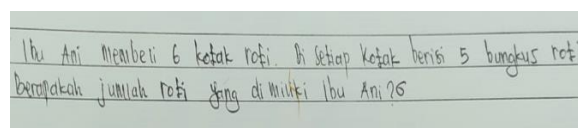 Ibu Ani membeli 6 kotak roti. Di setiap kotak berisi 5 bungkus roti
Berapakah jumlah roti yang dimiliki ibu Ani?6